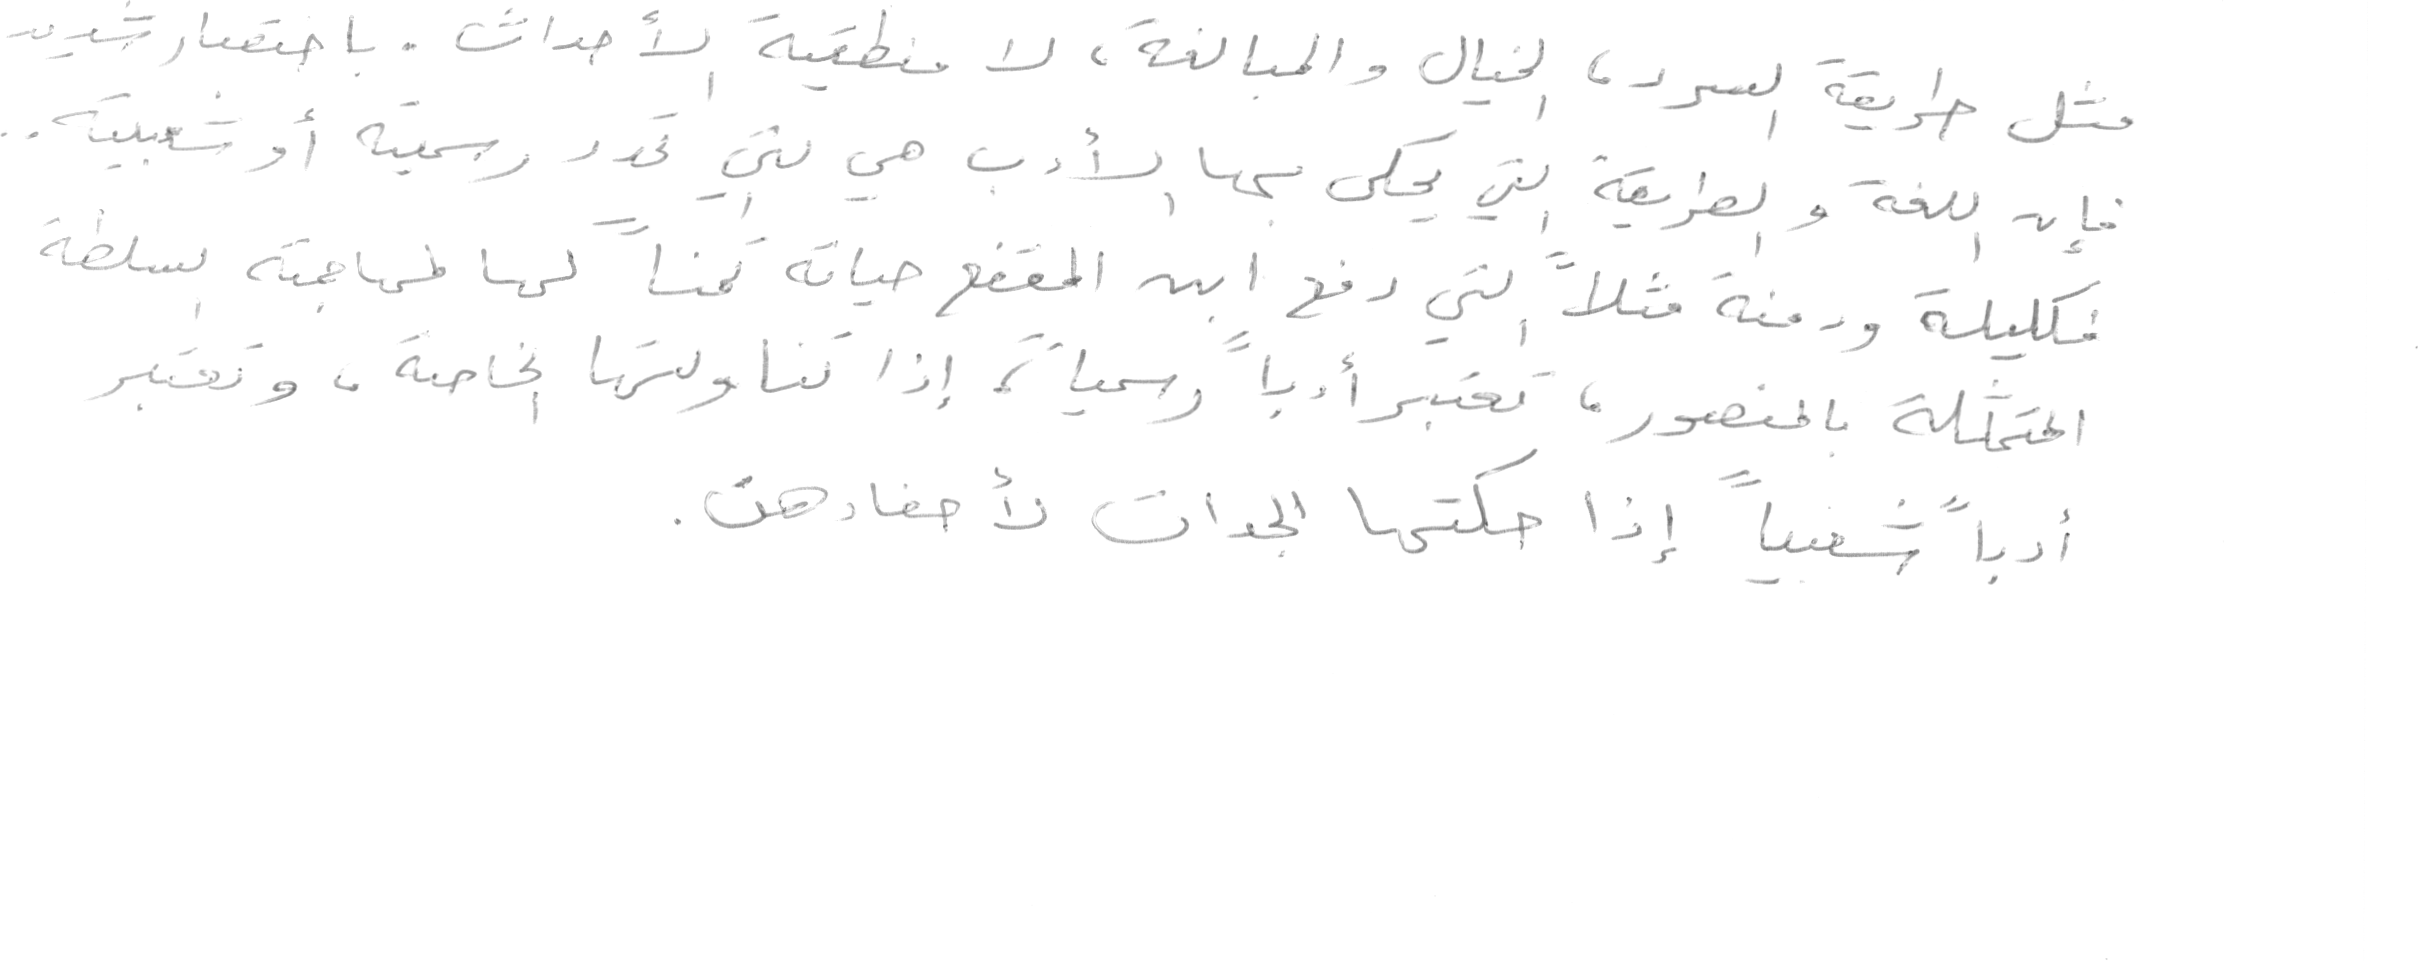 مثل طريقة السرد، الخيال والمبالغة، لا منطقية الأحداث. باختصار شديد
فإن اللغة والطريقة التي يحكى بها الأدب هي التي تحدد رسميته أو شعبيته..
فكليلة ودمنة مثلاً التي دفع ابن المقفع حياته ثمناً لها لمهاجمته السلطة
المتمثلة بالمنصور، تعتبر أدباً رسمياً، إذا تناولتها الخاصة، وتعتبر
أدباً شعبياً إذا حكتها الجدات لأحفادهن.